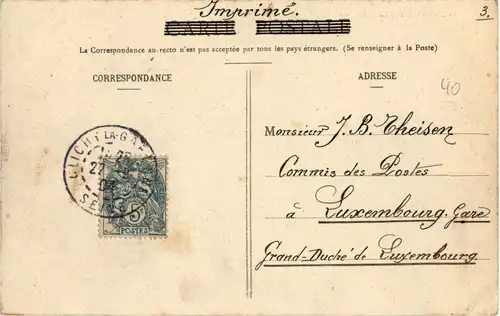 Imprimé.
3.
CARTE POSTALE
La Correspondance au recto n'est pas acceptée par tous les pays étrangers. (Se renseigner à la Poste)
CORRESPONDANCE
ADRESSE
40
Monsieur J. B. Theisen
Commis des Postes
à Luxembourg-Gare
Grand-Duché de Luxembourg
CLICHY LA-GAR
SE
5c
POSTES